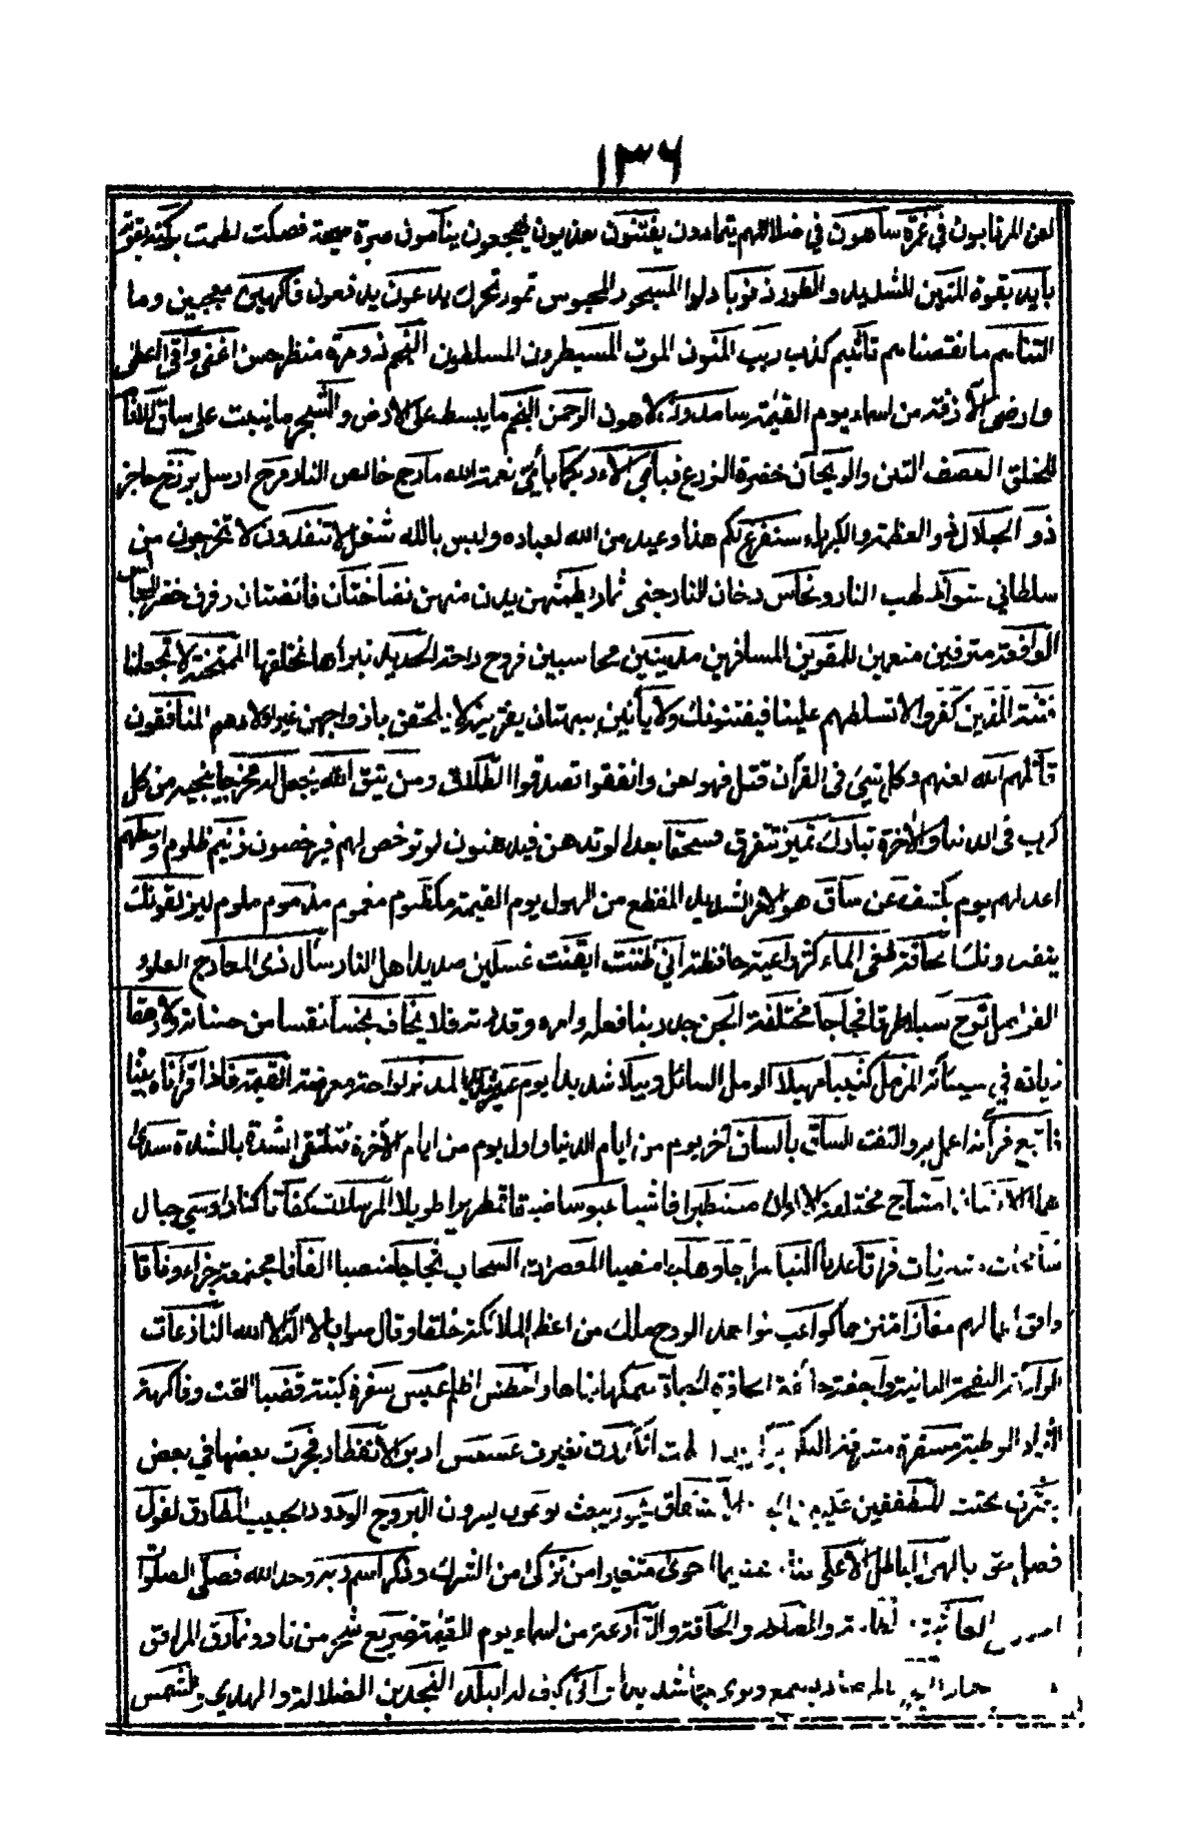 ١٣٦
لعن المرتابون في غمرة ساهون في ضلالتهم يتمادون يفتنون يعذبون يهجعون ينامون صرة صيحة فصكت لطمت بركنه بقوته
بايد بقوة المتين الشديد والطور ذنوبا دلوا المسجور المحبوس تمور تحرك يدعون يدفعون فاكهين معجبين وما
التناهم ما نقصناهم تأثيم كذب ريب المنون الموت المسيطرون المسلطون النجم ذو مرة منظر حسن اغنى واقنى اعطى
وارضى الآزفة من اسماء يوم القيمة سامدون لاهون الرحمن النجم ما يبسط على الارض والشجر ما ينبت على ساق للانام
للخلق العصف التبن والريحان خضرة الزرع فباي الاء ربكما باي نعمة الله مارج خالص النار مرج ارسل برزخ حاجز
ذو الجلال ذو العظمة والكبرياء سنفرغ لكم هذا وعيد من الله لعباده وليس بالله شغل لا تنفذون لا تخرجون من
سلطاني شواظ لهب النار ونحاس دخان النار جنى ثمار يطمثهن يدن منهن نضاختان فائضتان رفرف خضر
الواقعة مترفين منعمين للمقوين المسافرين مدينين محاسبين فروح راحة الحديد نبرأها نخلقها الممتحنة لا تجعلنا
فتنة للذين كفروا لا تسلطهم علينا فيفتنونك ولا يأتين ببهتان يفترينه لا يلحقن بازواجهن غير اولادهم المنافقون
قاتلهم الله لعنهم وكل شيء في القرآن قتل فهو لعن وانفقوا تصدقوا الطلاق ومن يتق الله يجعل له مخرجا ينجيه من كل
كرب في الدنيا والآخرة تبارك تميز تتفرق فسحقا بعدا لو تدهن فيدهنون لو ترخص لهم فيرخصون زنيم ظلوم اوسطهم
اعدلهم يوم يكشف عن ساق هو الامر الشديد المفظع من الهول يوم القيمة مكظوم مغموم مذموم ملوم ليزلقونك
ينفذونك الحاقة طغى الماء كثر واعية حافظة اني ظننت ايقنت غسلين صديد اهل النار سأل ذي المعارج العلو و
الفواضل نوح سبلا طرقا فجاجا مختلفة الجن جد ربنا فعله وامره وقدرته فلا يخاف بخسا نقصا من حسناته ولا رهقا
زيادة في سيئاته المزمل كثيبا مهيلا الرمل السائل وبيلا شديدا يوم عسير شديد المدثر لواحة معرضة القيمة فاذا قرأناه بينا
فاتبع قرآنه اعمل به والتفت الساق بالساق آخر يوم من ايام الدنيا واول يوم من ايام الآخرة فتلتقي الشدة بالشدة سدى
هملا امشاج مختلفة الالوان مستطيرا فاشيا عبوسا ضيقا قمطريرا طويلا المرسلات كفاتا كنا رواسي جبال
شامخات فراتا عذبا النبأ سراجا وهاجا مضيئا المعصرات السحاب ثجاجا منصبا الفافا مجتمعة جزاء وفاقا
وافق اعمالهم مفازا متنزها كواعب نواهد الروح ملك من اعظم الملائكة خلقا وقال صوابا لا اله الا الله النازعات
الرادفة النفخة الثانية واجفة خائفة الحافرة الحياة سمكها بناها واغطش اظلم عبس سفرة كتبة قضبا القت وفاكهة
الثمار الرطبة مسفرة مشرقة انكدرت تغيرت عسعس ادبر الانفطار فجرت بعضها في بعض
بعثرت بحثت المطففين عليين الانشقاق يحور يبعث يوعون يسرون البروج الودود الحبيب الطارق لقول
فصل حق بالهزل الباطل الاعلى غثاء هشيما احوى متغيرا من تزكى من الشرك وذكر اسم ربه وحد الله فصلى الصلوات
الغاشية والحاقة والقارعة من اسماء يوم القيمة ضريع شجر من نار ونمارق المرافق
يسمع ويرى جما شديدا واني كيف له البلد النجدين الضلالة والهدى والشمس